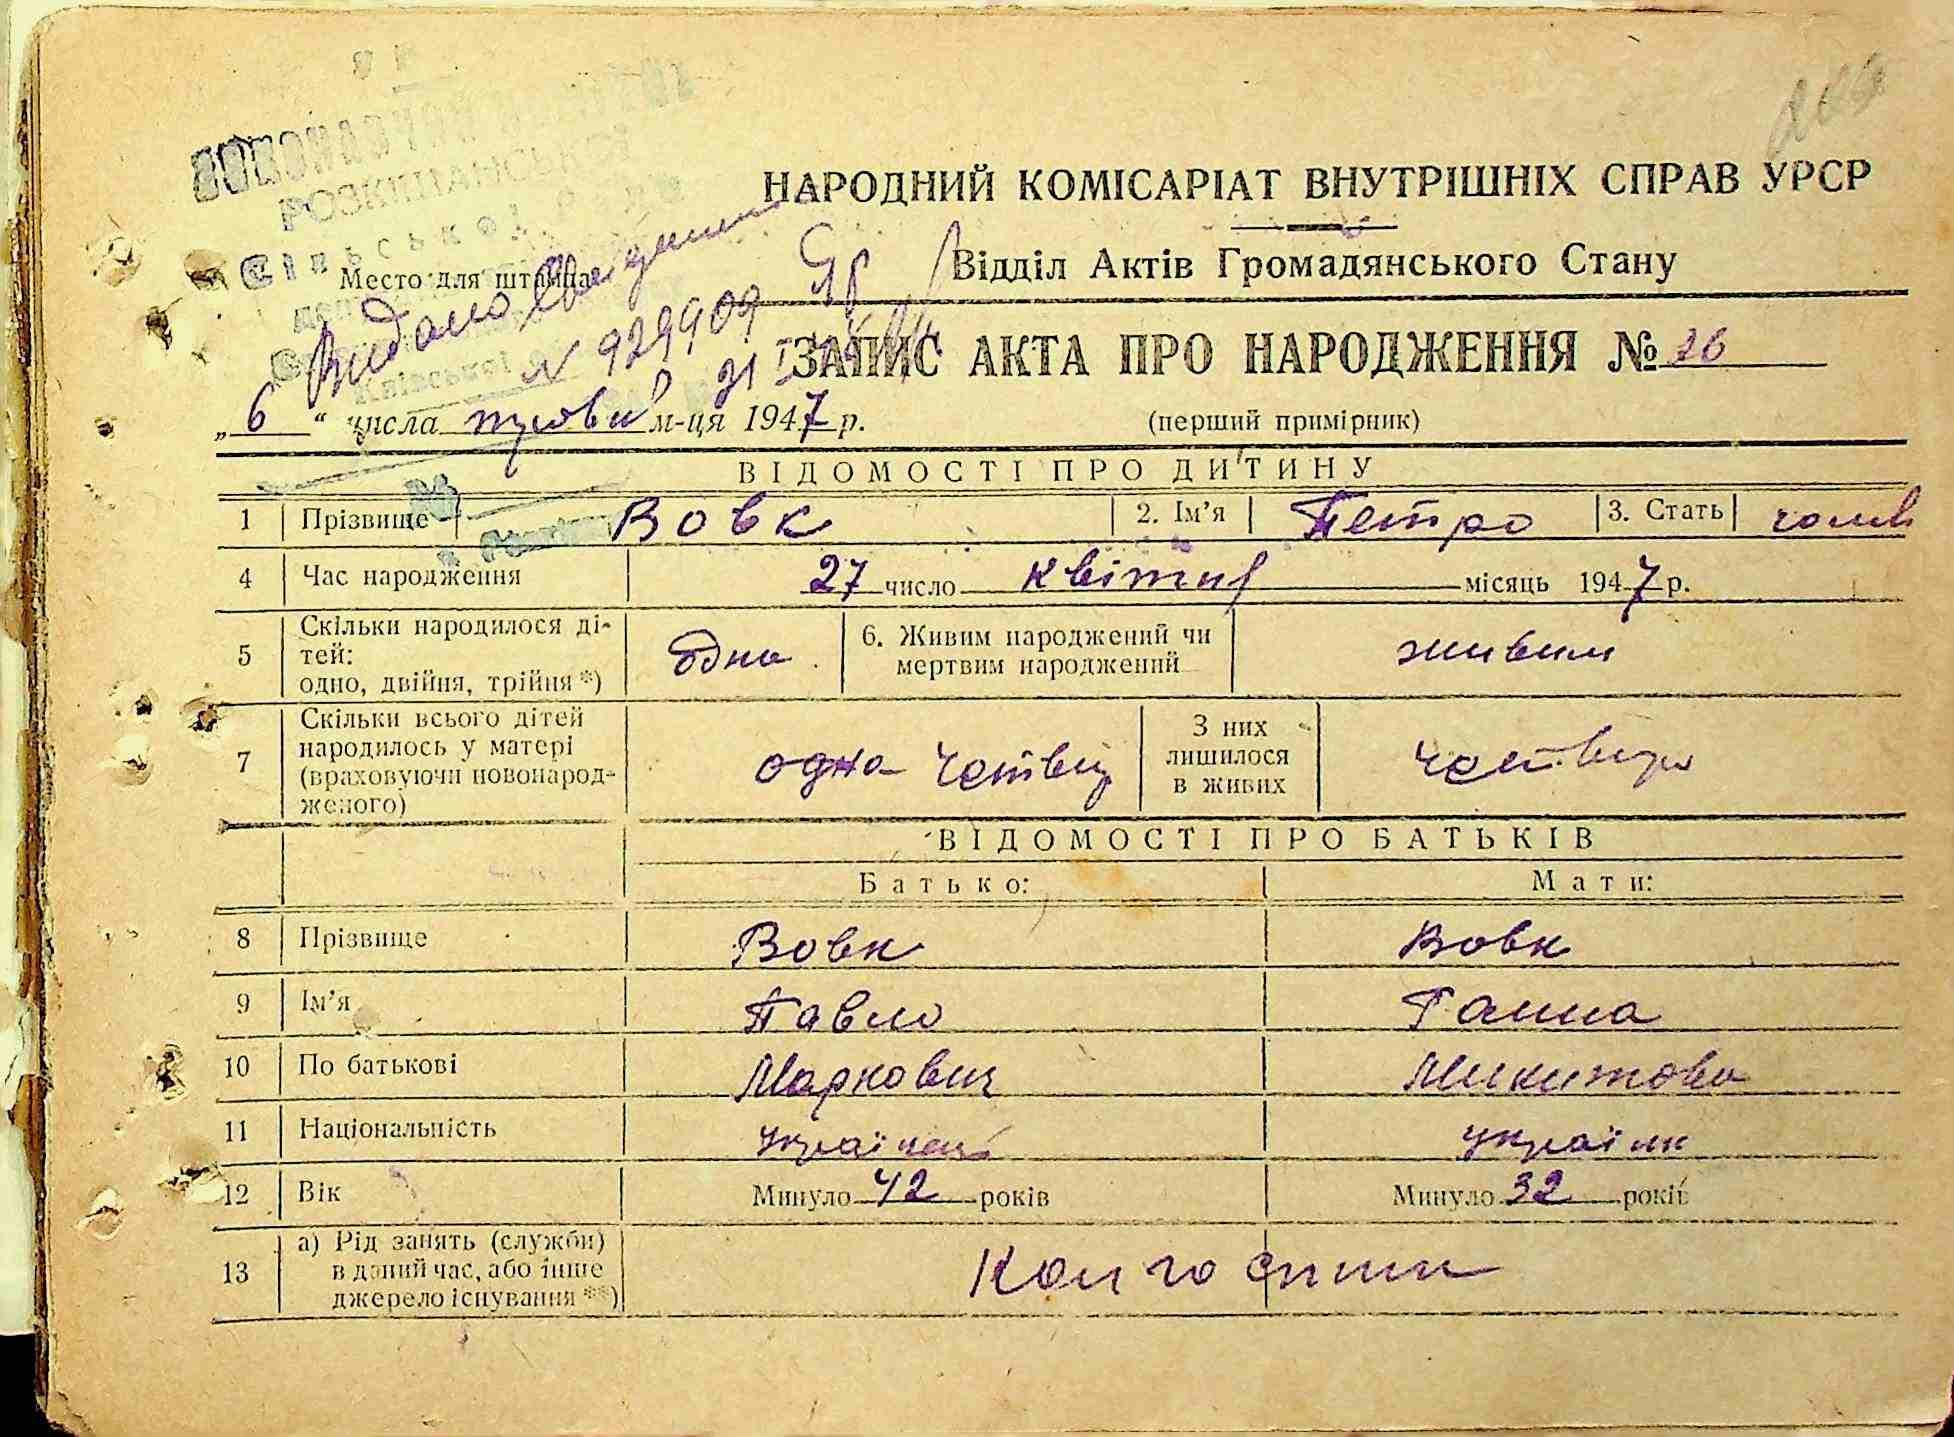 РОЗКІШАНСЬКОЇ
Сільської
Место для штампа
Київської
НАРОДНИЙ КОМІСАРІАТ ВНУТРІШНІХ СПРАВ УРСР
Відділ Актів Громадянського Стану
Видано
N 929909
ЗАПИС АКТА ПРО НАРОДЖЕННЯ № 26
„ 6 “ числа м-ця 1947 р.
(перший примірник)
ВІДОМОСТІ ПРО ДИТИНУ
1 Прізвище Вовк 2. Ім’я Петро 3. Стать чолов
4 Час народження 27 число квітня місяць 1947 р.
5 Скільки народилося ді-
тей:
одно, двійня, трійня *) одна 6. Живим народжений чи
мертвим народжений живим
7 Скільки всього дітей
народилось у матері
(враховуючи новонарод-
женого) одна четвер З них
лишилося
в живих четверо
ВІДОМОСТІ ПРО БАТЬКІВ
Батько: Мати:
8 Прізвище Вовк Вовк
9 Ім’я Павло Ганна
10 По батькові Маркович Микитова
11 Національність українець українк
12 Вік Минуло 42 років Минуло 32 років
13 а) Рід занять (служби)
в даний час, або інше
джерело існування **) Колгоспник